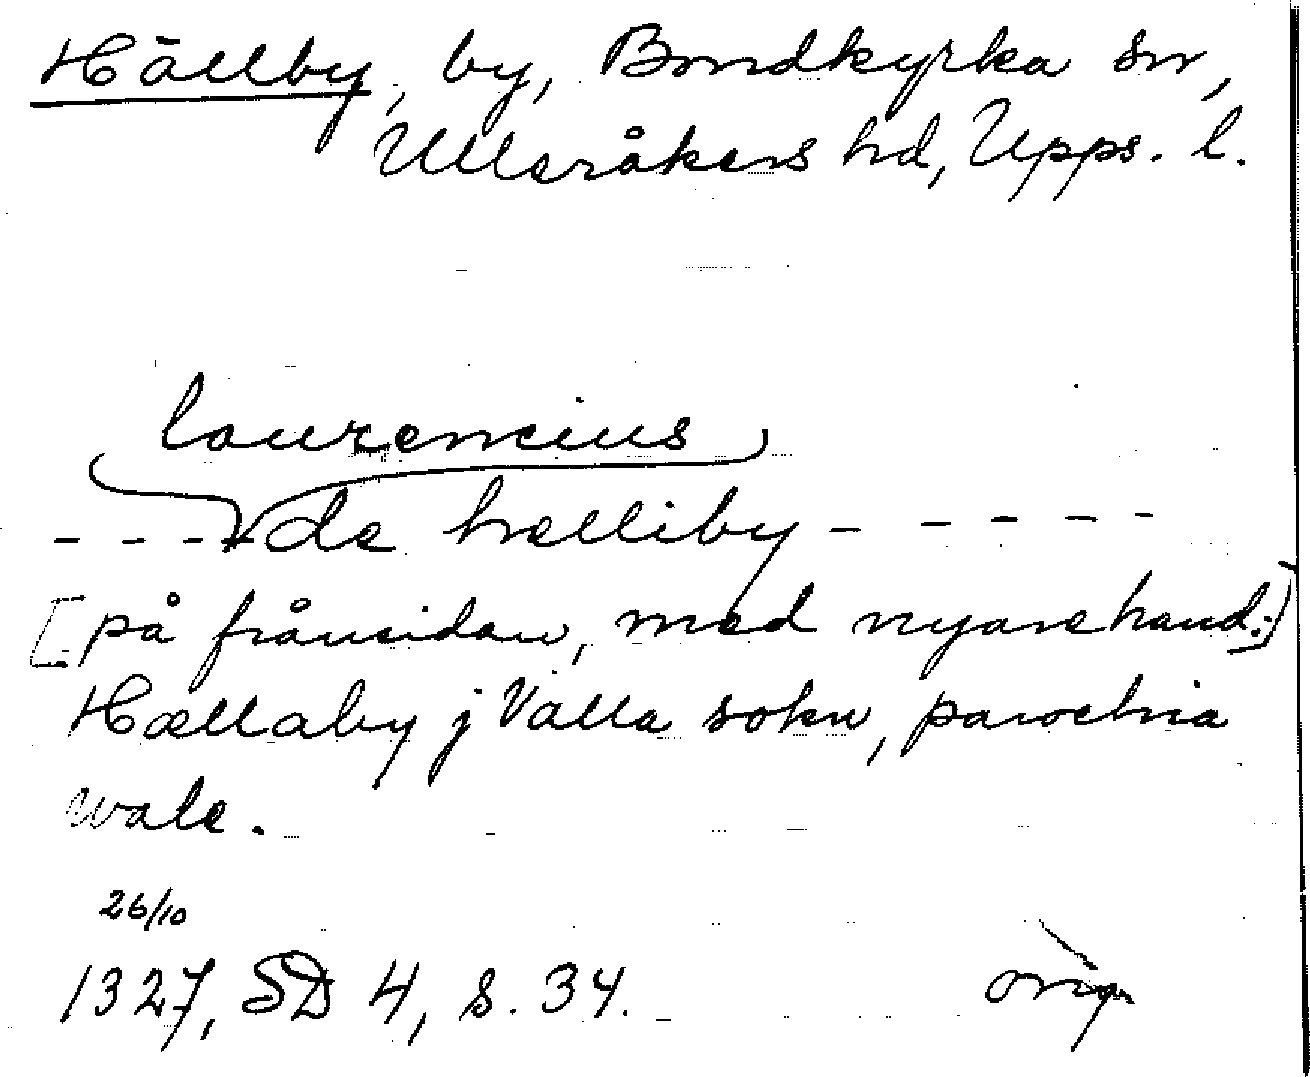 Hällby, by, Bondkyrka sn,
Ulleråkers hd, Upps. l.
laurencius
- - - de hælliby - - - - -
[på frånsidan, med nyare hand:]
Hællaby j Valla sokn, parochia
wale.
26/10
1327, SD 4, s. 34.
orig